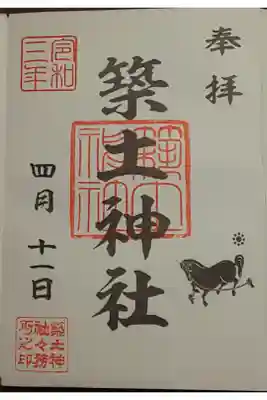 奉拝
築土神社
令和三年
四月十一日
築土神社々務所之印